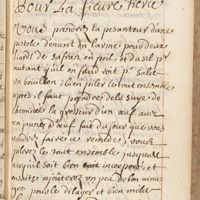 pour La fieure tierce
Vous prendres la pesanteur dune
pistole deuent du larme pour deux
liards de safran en poil, et du sel p
autant quil en faut pour po saler
un bouillon, bien piler le tout ensemble
apres il faut prendre de la suye de
cheminée la grosseur dun œuf auec
un jaune d'œuf fait du jour que vous
voudres faire ce remede, vous
pileres le tout ensemble jusquau
ce quil soit bien incorpore, et
ensuitte ajoutteres un peu de bon uinai
gre pour le delayer et bien meler